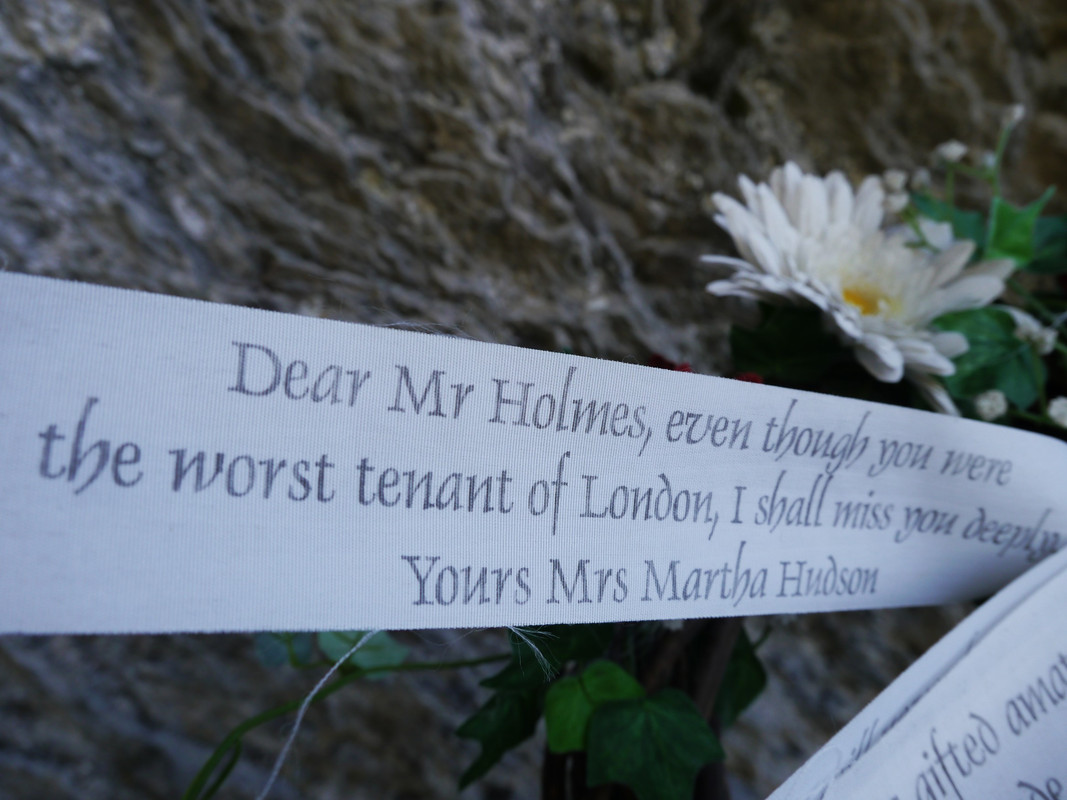 Dear Mr Holmes, even though you were
the worst tenant of London, I shall miss you deeply
Yours Mrs Martha Hudson
gifted